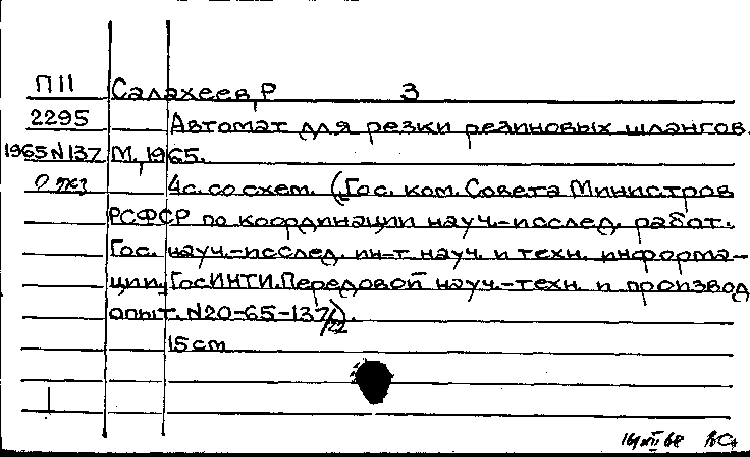 П11 Салахеев, Р 3
2295 Автомат для резки резиновых шлангов.
1965N137 М., 1965.
4с. со схем. (Гос. ком. Совета Министров
РСФСР по координации науч.-исслед. работ.
Гос. науч.-исслед. ин-т науч. и техн. информа-
ции. ГосИНТИ. Передовой науч.-техн. и производ
опыт. N20-65-137/22).
15 cm